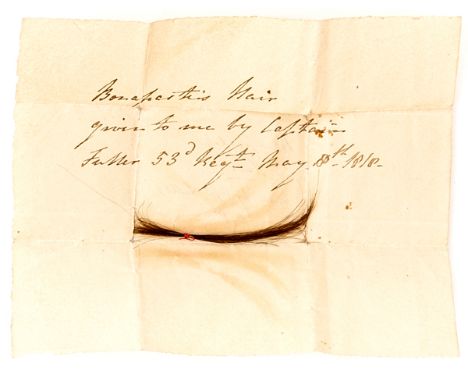 Bonaparte's Hair
given to me by Captain
Fuller 53d Regt. May 8th 1818-